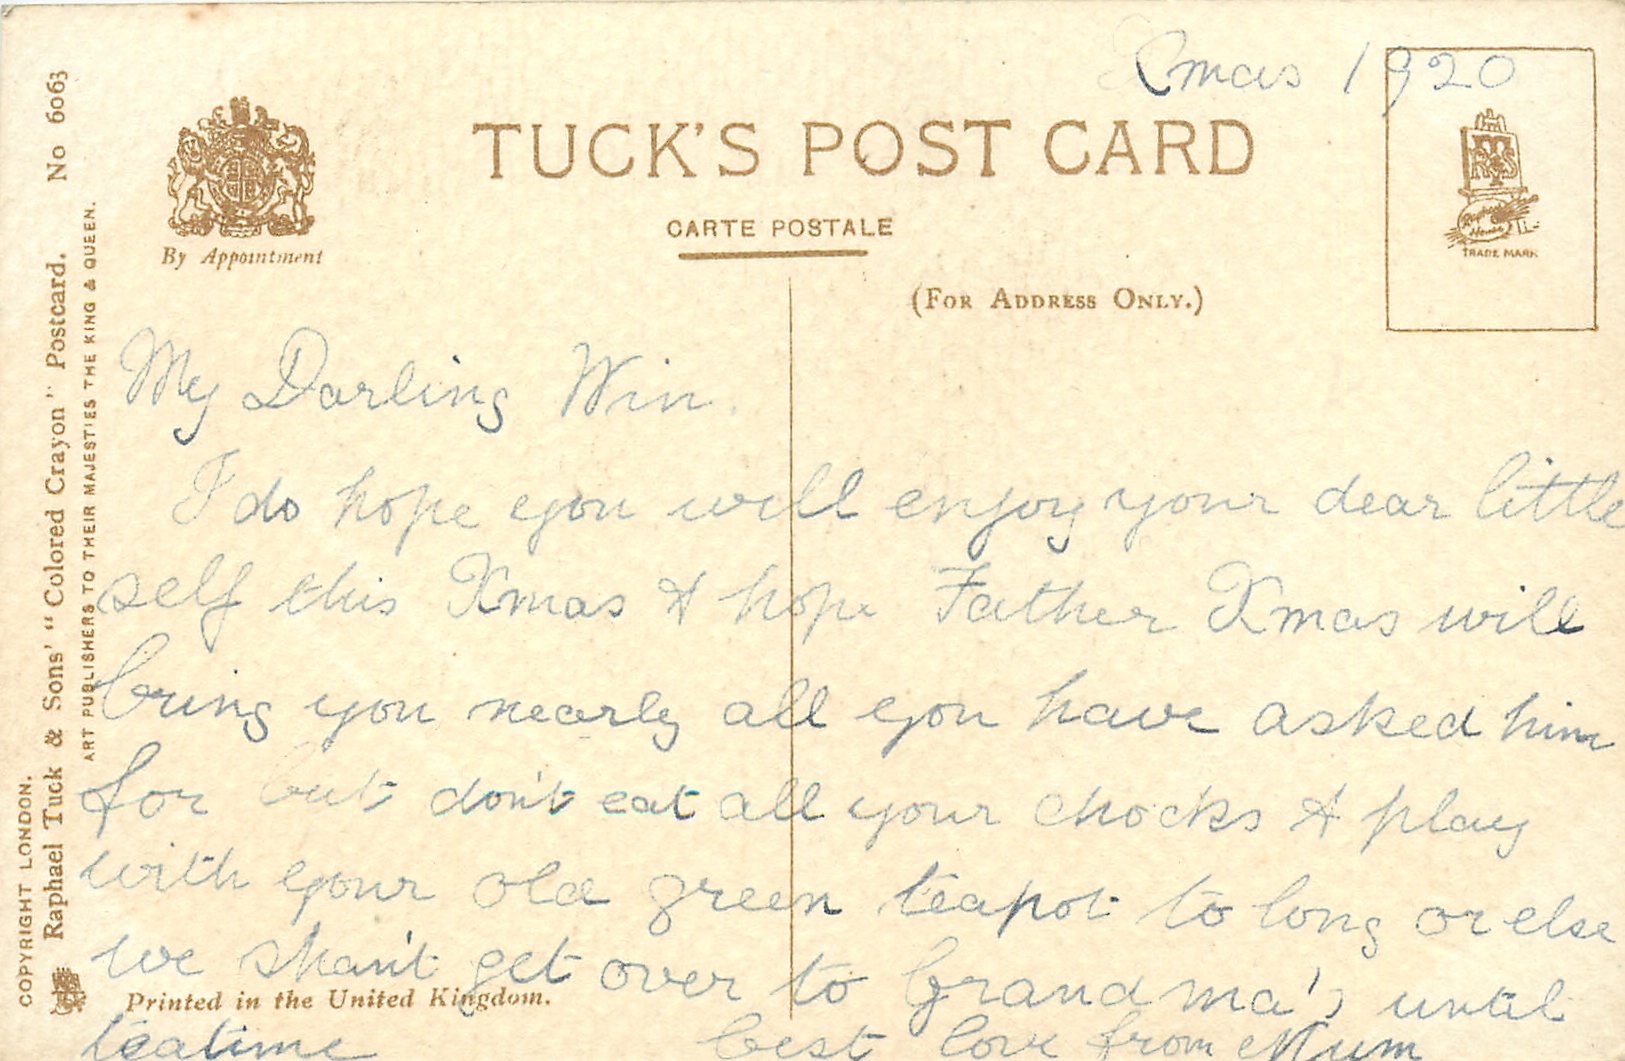 Xmas 1920
TUCK'S POST CARD
CARTE POSTALE
By Appointment
(FOR ADDRESS ONLY.)
TRADE MARK
COPYRIGHT LONDON.
Raphael Tuck & Sons' "Colored Crayon" Postcard. No 6063
ART PUBLISHERS TO THEIR MAJESTIES THE KING & QUEEN.
My Darling Win
I do hope you will enjoy your dear little
self this Xmas & hope Father Xmas will
bring you nearly all you have asked him
for but don't eat all your chocks & play
with your old green teapot to long or else
we shan't get over to Grandma's until
teatime best love from Mum
Printed in the United Kingdom.